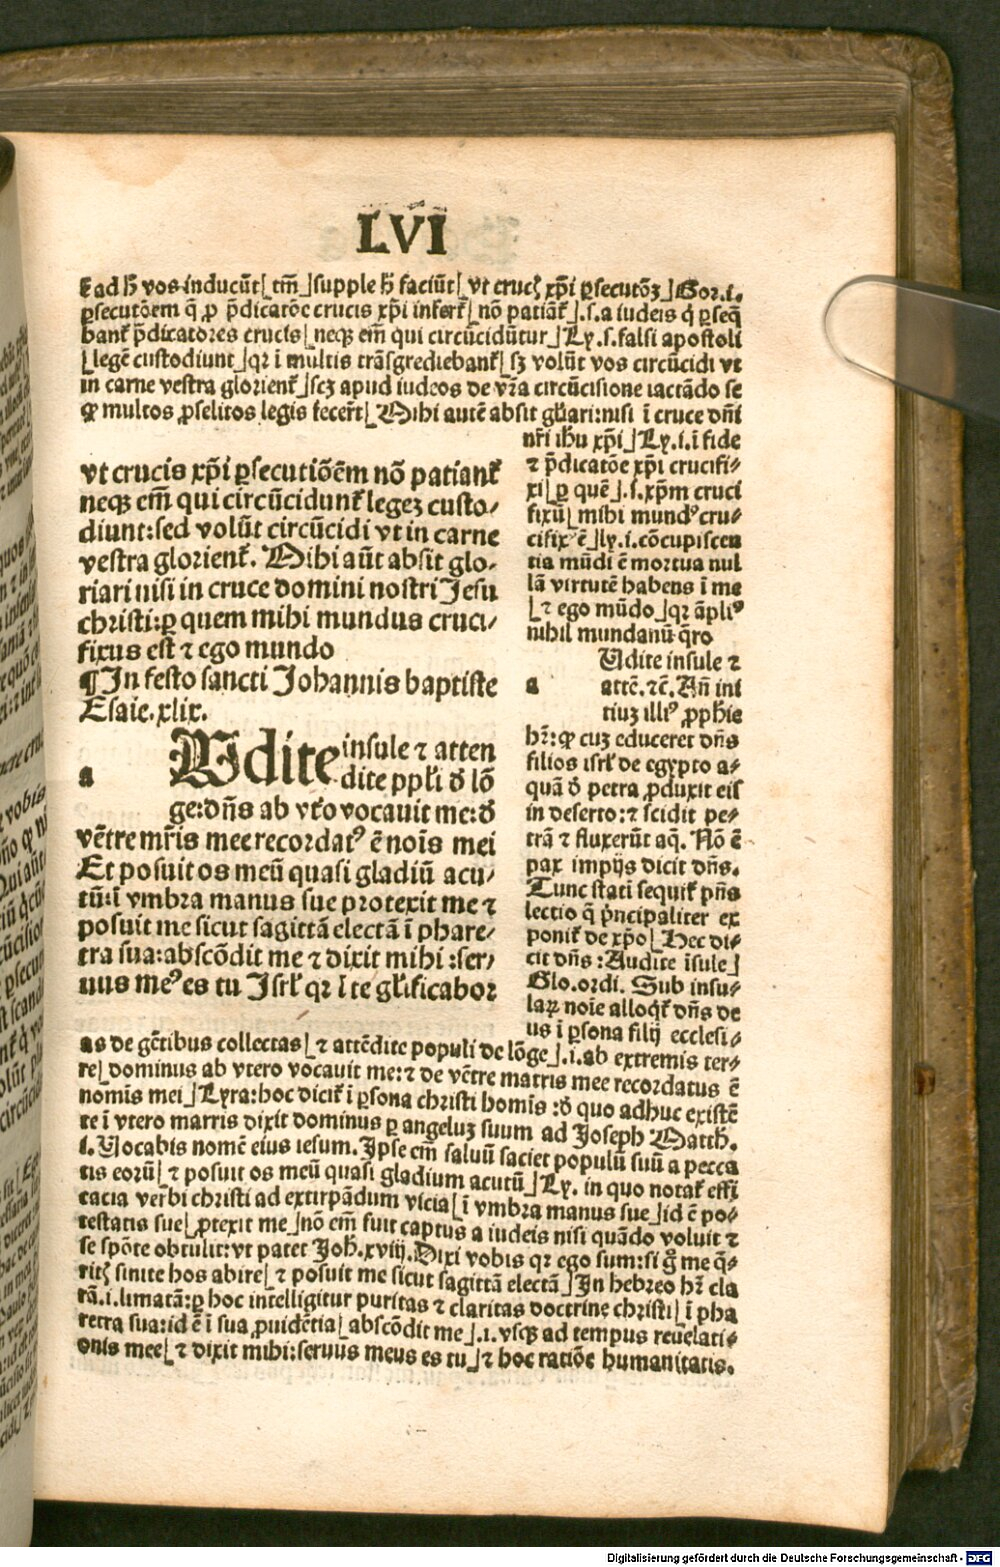 LVI
⁊ ad h̄ vos inducūt⌊ tm̄ ⌋supple h̄ faciūt⌊ vt crucꝭ xp̄i ꝑsecutōꝫ ⌋Gor.i.
ꝑsecutōem q̄ ꝓ p̄dicatōe crucis xp̄i infert᷑⌊ nō patiāt᷑ ⌋.s.a iudeis q̇ ꝑseq̄
bant᷑ p̄dicatores crucis⌊ neqꝫ em̄ qui circūcidūtur ⌋Ly.s.falsi apostoli
⌊legē custodiunt ⌋qꝛ ī multis trāsgrediebant᷑⌊ sꝫ volūt vos circūcidi vt
in carne vestra glorient᷑ ⌋scꝫ apud iudeos de vr̄a circūcisione iactādo se
ꝙ multos ꝓselitos legis fecer̄t⌊ Mihi autē absit gl̄ari:nisi ī cruce dn̄i
nr̄i ihū xp̄i ⌋Ly.i.ī fide
⁊ p̄dicatōe xp̄i crucifi⸗
xi⌊ ꝑ quē ⌋.s.xp̄m cruci
fixū⌊ mihi mundꝰ cru⸗
cifixꝰ ē ⌋ly.i.cōcupiscen
tia mūdi ē mortua nul
lā virtutē habens ī me
⌊⁊ ego mūdo ⌋qꝛ āpliꝰ
nihil mundanū q̄ro
vt crucis xp̄i ꝑsecutiōēm nō patiant᷑
neqꝫ em̄ qui circūcidunt᷑ legeꝫ custo⸗
diunt:sed volūt circūcidi vt in carne
vestra glorient᷑. Mihi aūt absit glo⸗
riari nisi in cruce domini nostri Jesu
christi:ꝑ quem mihi mundus cruci⸗
fixus est ⁊ ego mundo
¶In festo sancti Johannis baptiste
Esaie.xlix.
a
AUdite insule ⁊ atten
dite ppl̄i ď lō
ge:dn̄s ab vt̄o vocauit me:ď
vētre mr̄is mee recordatꝰ ē noīs mei
Et posuit os meū quasi gladiū acu⸗
tū:ī vmbra manus sue protexit me ⁊
posuit me sicut sagittā electā ī phare⸗
tra sua:abscōdit me ⁊ dixit mihi :ser⸗
uus meꝰ es tu Isrl̄ qꝛ ī te gl̄ificabor
a
Udite insule ⁊
attē.⁊c̄.An̄ ini
tiuꝫ illiꝰ ꝓph̄ie
hr̄:ꝙ cuꝫ educeret dn̄s
filios isrl̄ de egypto a⸗
quā ď petra ꝓduxit eis
in deserto:⁊ scidit pe⸗
trā ⁊ fluxerūt aq̄. Nō ē
pax impijs dicit dn̄s.
Tunc stati sequit᷑ pn̄s
lectio q̄ pͥncipaliter ex
ponit᷑ de xp̄o⌊ Hec di⸗
cit dn̄s :Audite īsule⌋
Glo.ordi. Sub insu⸗
laꝝ noīe alloqͥt᷑ dn̄s de
us ī ꝑsona filij ecclesi⸗
as de gētibus collectas⌊ ⁊ attēdite populi de lōge ⌋.i.ab extremis ter⸗
re⌊ dominus ab vtero vocauit me:⁊ de vētre matris mee recordatus ē
nomīs mei ⌋Lyra:hoc dicit᷑ ī ꝑsona christi homīs :ď quo adhuc existē
te ī vtero matris dixit dominus ꝑ angeluꝫ suum ad Joseph Matth.
i.Vocabis nomē eius iesum.Ipse em̄ saluū faciet populū suū a pecca
tis eorū⌊ ⁊ posuit os meū quasi gladium acutū ⌋Ly. in quo notat᷑ effi
cacia verbi christi ad extirpādum vicia⌊ ī vmbra manus sue ⌋id ē po⸗
testatis sue⌊ ꝓtexit me ⌋nō em̄ fuit captus a iudeis nisi quādo voluit ⁊
se spōte obtulit:vt patet Joh̄.xviij.Dixi vobis qꝛ ego sum:si gͦ me q̄⸗
ritꝭ sinite hos abire⌊ ⁊ posuit me sicut sagittā electā ⌋In hebreo hr̄ cla
rā.i.limatā:ꝑ hoc intelligitur puritas ⁊ claritas doctrine christi⌊ ī pha
retra sua:id ē ī sua ꝓuidētia⌊ abscōdit me ⌋.i.vsqꝫ ad tempus reuelati⸗
onis mee⌊ ⁊ dixit mihi:seruus meus es tu ⌋⁊ hoc ratiōe humanitatis.
Digitalisierung gefördert durch die Deutsche Forschungsgemeinschaft - DFG